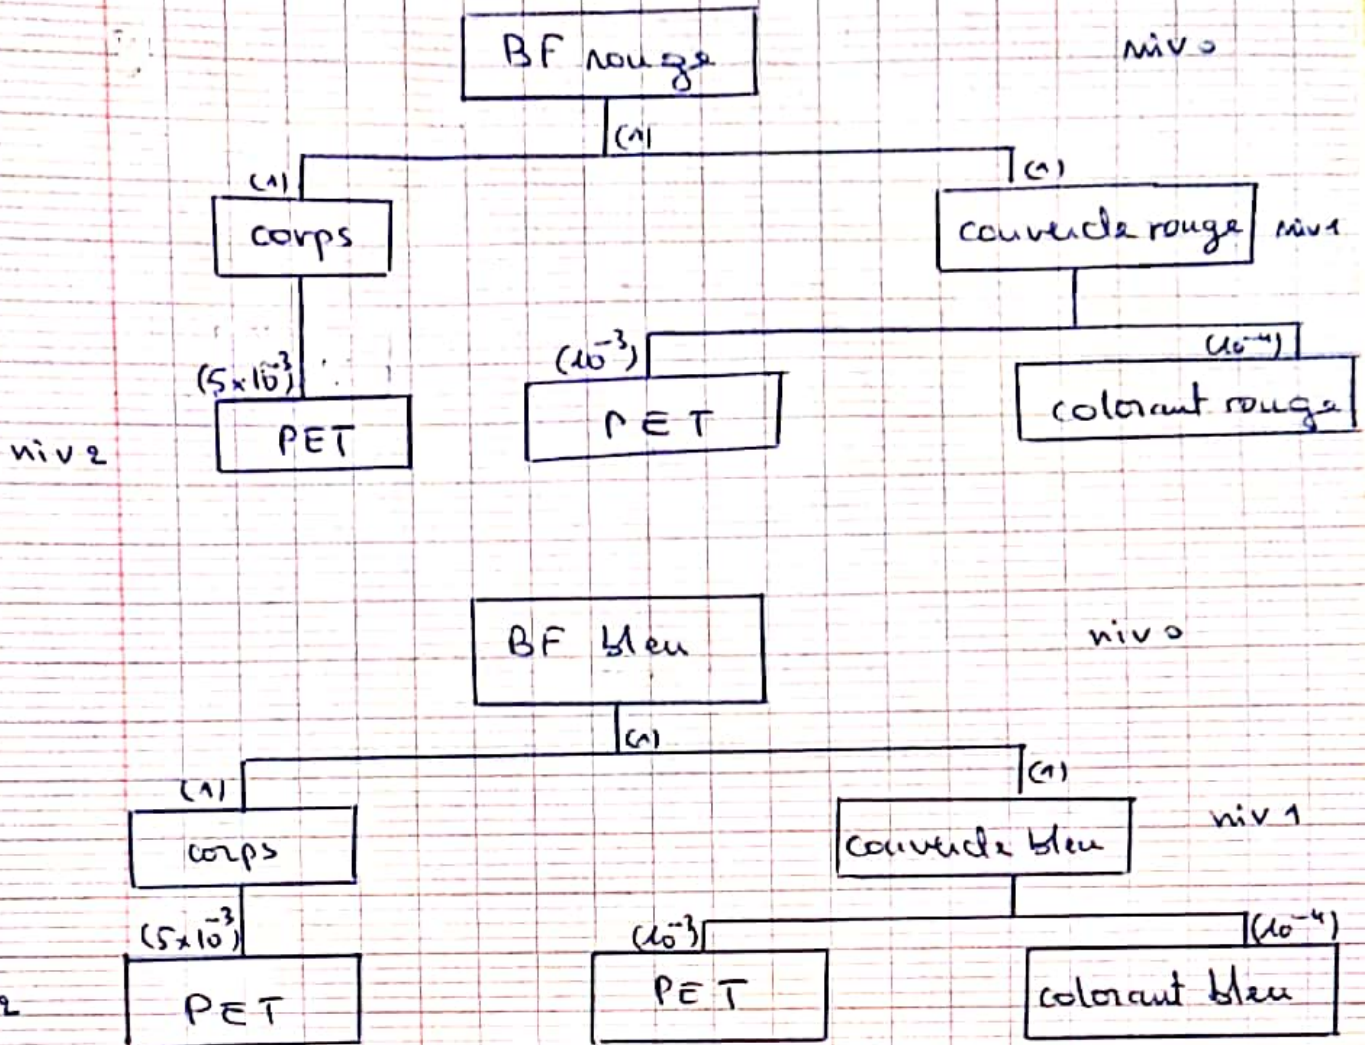 BF rouge niv 0
(1)
(1) (1)
corps couvercle rouge niv 1
(10⁻³) (10⁻⁴)
(5×10⁻³)
PET PET colorant rouge
niv 2
BF bleu niv 0
(1)
(1) (1)
corps couvercle bleu niv 1
(5×10⁻³) (10⁻³) (10⁻⁴)
PET PET colorant bleu
2